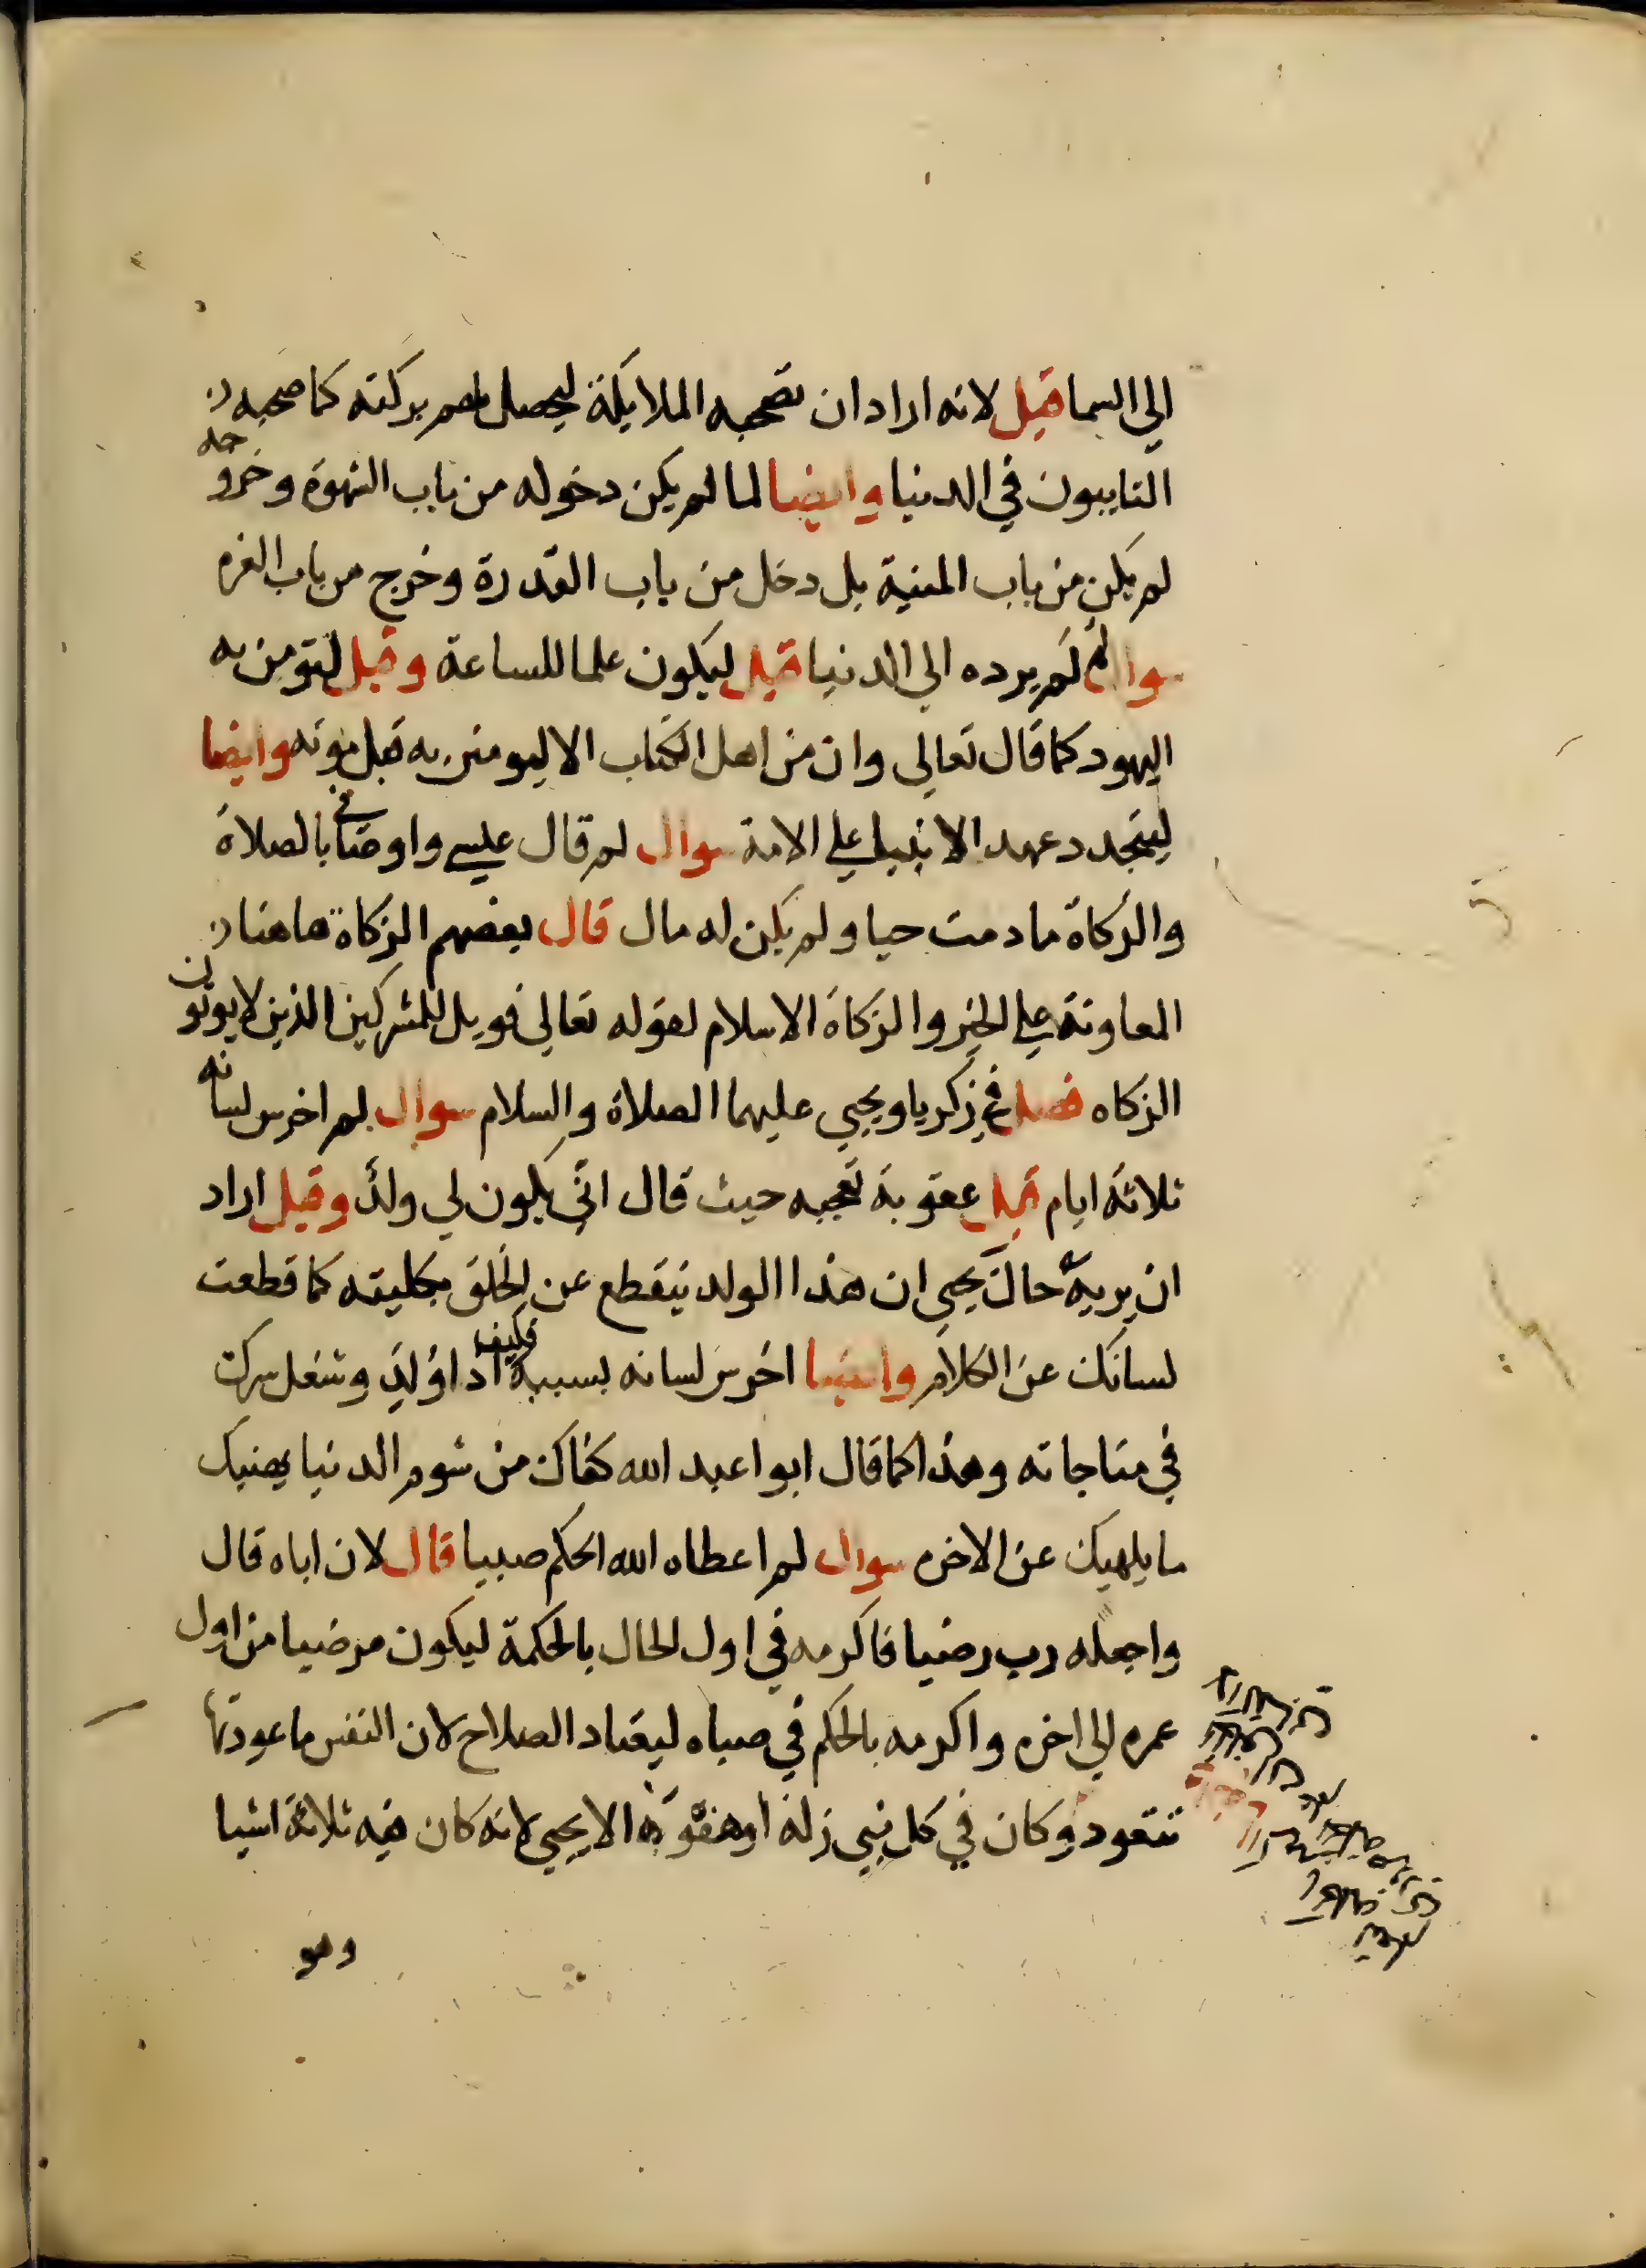 الي السما قيل لانه اراد ان تصحبه الملايكة ليحصل لهم بركته كما صحبه
التايبون في الدنيا وايضا لما لم يكن دخوله من باب الشهوة وخروجه
لم يكن من باب المنية بل دخل من باب القدرة وخرج من باب العزه
سوال لم لم يرده الي الدنيا قيل ليكون علما للساعة وقيل لتومن به
اليهود كما قال تعالي وان من اهل الكتاب الا ليومنن به قبل موته وايضا
ليتجدد عهد الانبيا علي الامة سوال لم قال عيسي واوصاني بالصلاة
والزكاة ما دمت حيا ولم يكن له مال قال بعضهم الزكاة هاهنا
المعاونة علي الخير والزكاة الاسلام لقوله تعالي فويل للمشركين الذين لا يوتون
الزكاه فصل في زكريا ويحيي عليهما الصلاة والسلام سوال لم اخرس لسانه
ثلاثة ايام قيل عقوبة تعجبه حيث قال اني يكون لي ولد وقيل اراد
ان يريه حالة يحيي ان هذا الولد ينقطع عن الخلق بكليته كما قطعت
لسانك عن الكلام وايضا اخرس لسانه بسببه فكيف اذا ولد وشغل سرك
في مناجاته وهذا كما قال ابوا عبد الله كفاك من شوم الدنيا يعنيك
ما يلهيك عن الاخره سوال لم اعطاه الله الحكم صبيا قال لان اباه قال
واجعله رب رضيا فاكرمه في اول الحال بالحكمة ليكون مرضيا من اول
عمره الي اخره واكرمه بالحكم في صباه ليعتاد الصلاح لان النفس ما عودتها
تتعود وكان في كل نبي زلة او هفوة الا يحيي لانه كان فيه ثلاثة اشيا
وهو